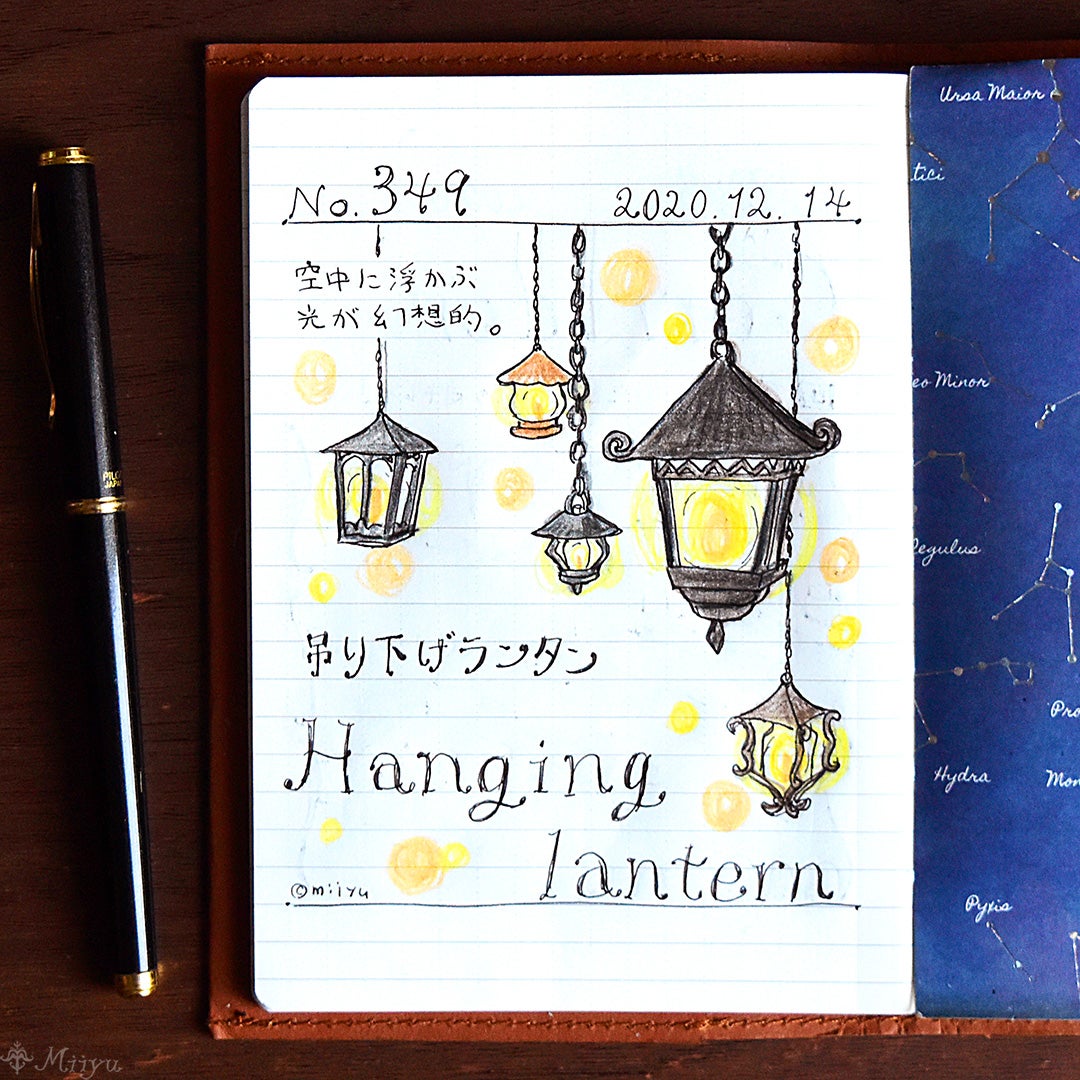 No. 349
2020.12.14
空中に浮かぶ
光が幻想的。
吊り下げランタン
Hanging
lantern
©miiyu
PILOT
JAPAN
Ursa Maior
Regulus
Hydra
Pyxis
Miiyu